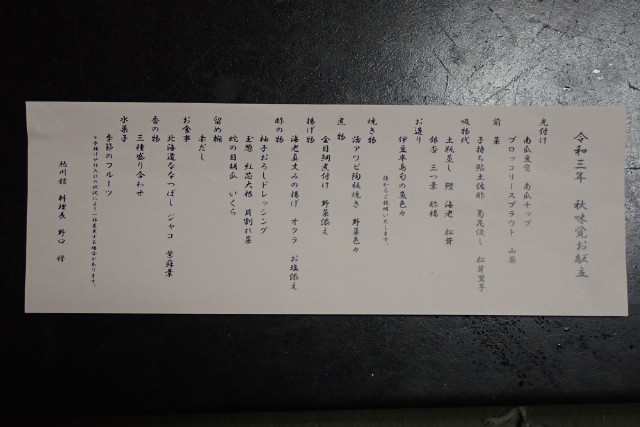 令和三年 秋味覚お献立
先付け
南瓜豆腐 南瓜チップ
ブロッコリースプラウト 山葵
前菜
子持ち鮎土佐酢 菊花浸し 松茸里芋
吸物代
土瓶蒸し 鱧 海老 松茸
銀杏 三つ葉 酢橘
お造り
伊豆半島旬の魚色々
係からご説明いたします。
焼き物
活アワビ陶板焼き 野菜色々
煮物
金目鯛煮付け 野菜添え
揚げ物
海老真丈みの揚げ オクラ お塩添え
酢の物
柚子おろしドレッシング
玉葱 紅芯大根 貝割れ菜
蛇の目胡瓜 いくら
留め椀
赤だし
お食事
北海道ななつぼし ジャコ 紫蘇葉
香の物
三種盛り合わせ
水菓子
季節のフルーツ
※食材は仕入れの状況により一部変更する場合があります。
料理長 野口 修